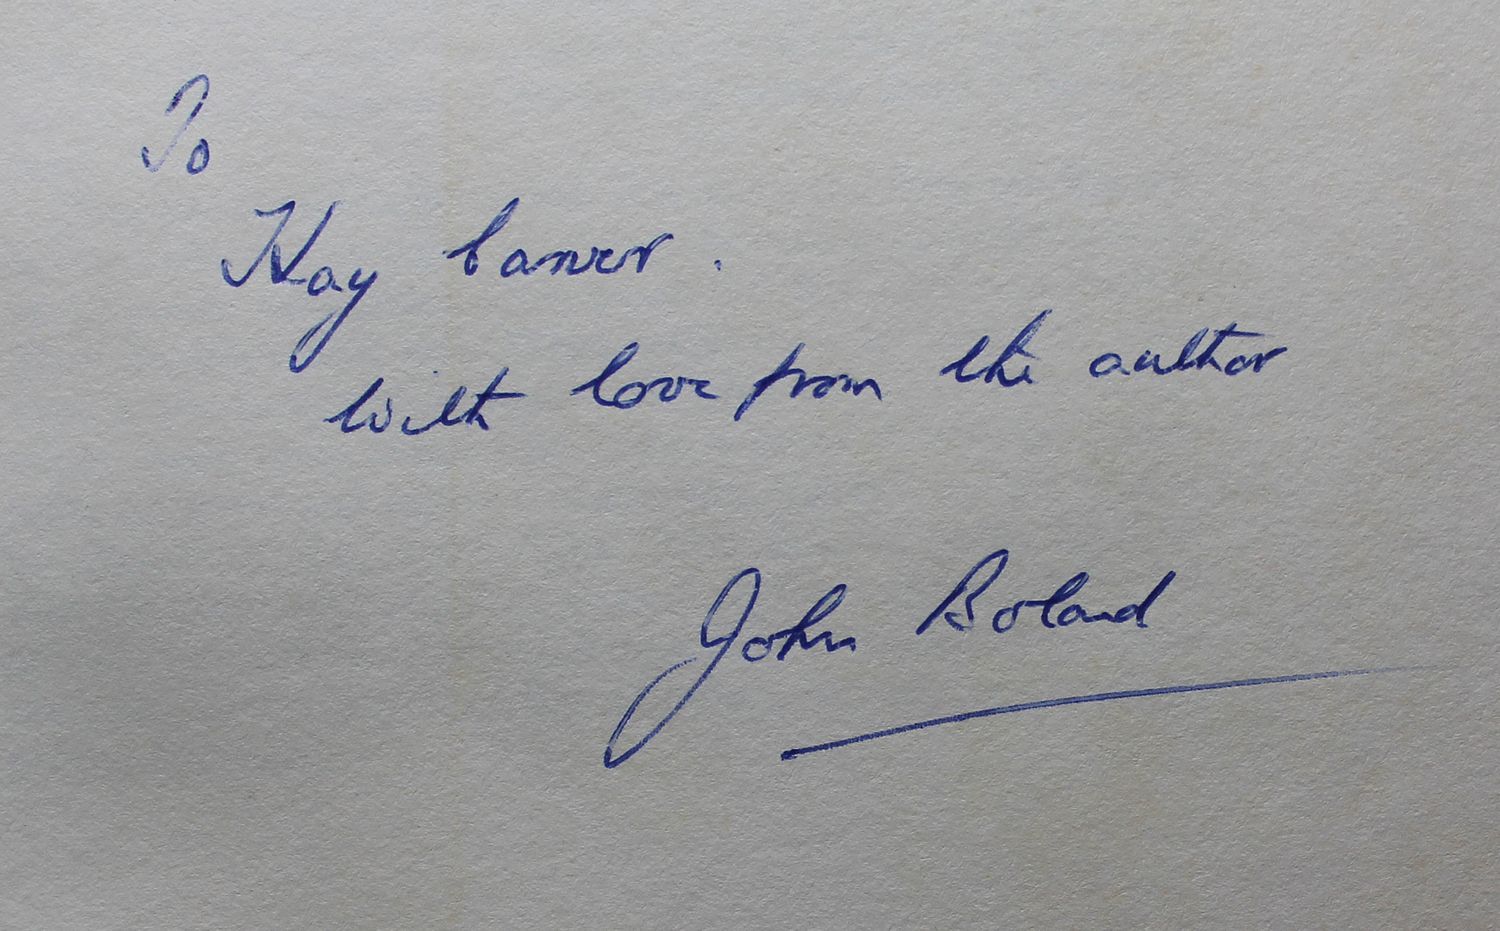 To
Kay
with love from the author
John Boland